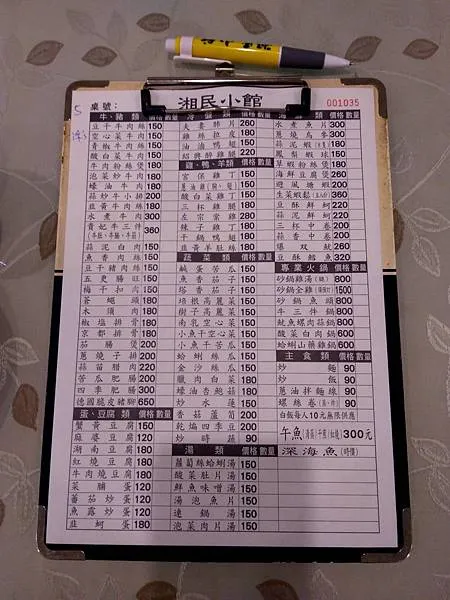 桌號：
湘民小館
001035
牛、豬 類 價格 數量
豆干牛肉絲 150
空心菜牛肉 150
青椒牛肉絲 150
酸白菜牛肉 150
牛肉粉絲煲 180
泡菜炒牛肉 180
蠔油牛肉 180
蒜炒牛小排 200
豆黃牛肉絲 180
水煮牛肉 300
貴妃牛三件 360
蒜泥白肉 150
魚香肉絲 150
豆干豬肉絲 150
五更腸旺 150
梅干扣肉 180
蒼蠅頭 180
木須肉 180
椒鹽排骨 180
京都排骨 180
茄腸煲 200
蔥燒子排 200
蒜苗腊肉 220
苦瓜肥腸 200
四季肥腸 300
德國脆皮豬腳 650
蛋、豆腐 類 價格 數量
蟹黃豆腐 150
麻婆豆腐 120
湖南豆腐 180
紅燒豆腐 180
牛肉燒豆腐 180
菜脯蛋 120
蕃茄炒蛋 120
魚露炒蛋 120
韭蚵蛋 180
價格 數量
夫妻肺片 260
雞絲拉皮 180
油油鴨翅 150
紹興醉雞腿 220
雞、鴨、羊類 價格 數量
宮保雞丁 150
酸白菜雞丁 150
三杯雞腿 180
左宗棠雞 280
辣子雞丁 180
干鍋鴨翅 180
韭黃羊肚絲 180
蔬菜類 價格 數量
鹹蛋苦瓜 150
魚香茄子 150
塔香茄子 150
培根高麗菜 150
樹子高麗菜 150
南乳空心菜 150
小魚干空心菜 150
小魚干苦瓜 150
蛤蜊絲瓜 150
金沙絲瓜 150
臘肉白菜 180
蠔油杏鮑菇 180
炒水蓮 150
香菇蘆筍 200
乾煸四季豆 200
炒時蔬 90
湯類 價格 數量
蘿蔔絲蛤蜊湯 150
酸菜肚片湯 150
鮮魚味噌湯 150
湯泡魚片 150
連鍋湯 150
泡菜肉片湯 150
價格 數量
水煮魚片 300
蔥燒烏參 300
鳳梨蝦球 150
草蝦粉絲煲 180
海鮮豆腐煲 260
避風塘蝦 200
豆酥鮮蚵 220
蒜泥鮮蚵 220
三杯中卷 200
蒜香中卷 200
爆双魷 260
豆酥鱈魚 320
專業火鍋 價格 數量
砂鍋雞湯 800
砂鍋全雞 1500
砂鍋魚頭 800
牛三件鍋 800
魷魚螺肉蒜鍋 800
酸菜白肉鍋 600
蛤蜊山藥雞鍋 600
主食類 價格 數量
炒麵 90
炒飯 90
蔥油拌麵線 90
螺絲卷 90
白飯每人10元無限供應
午魚 300元
深海魚(時價)